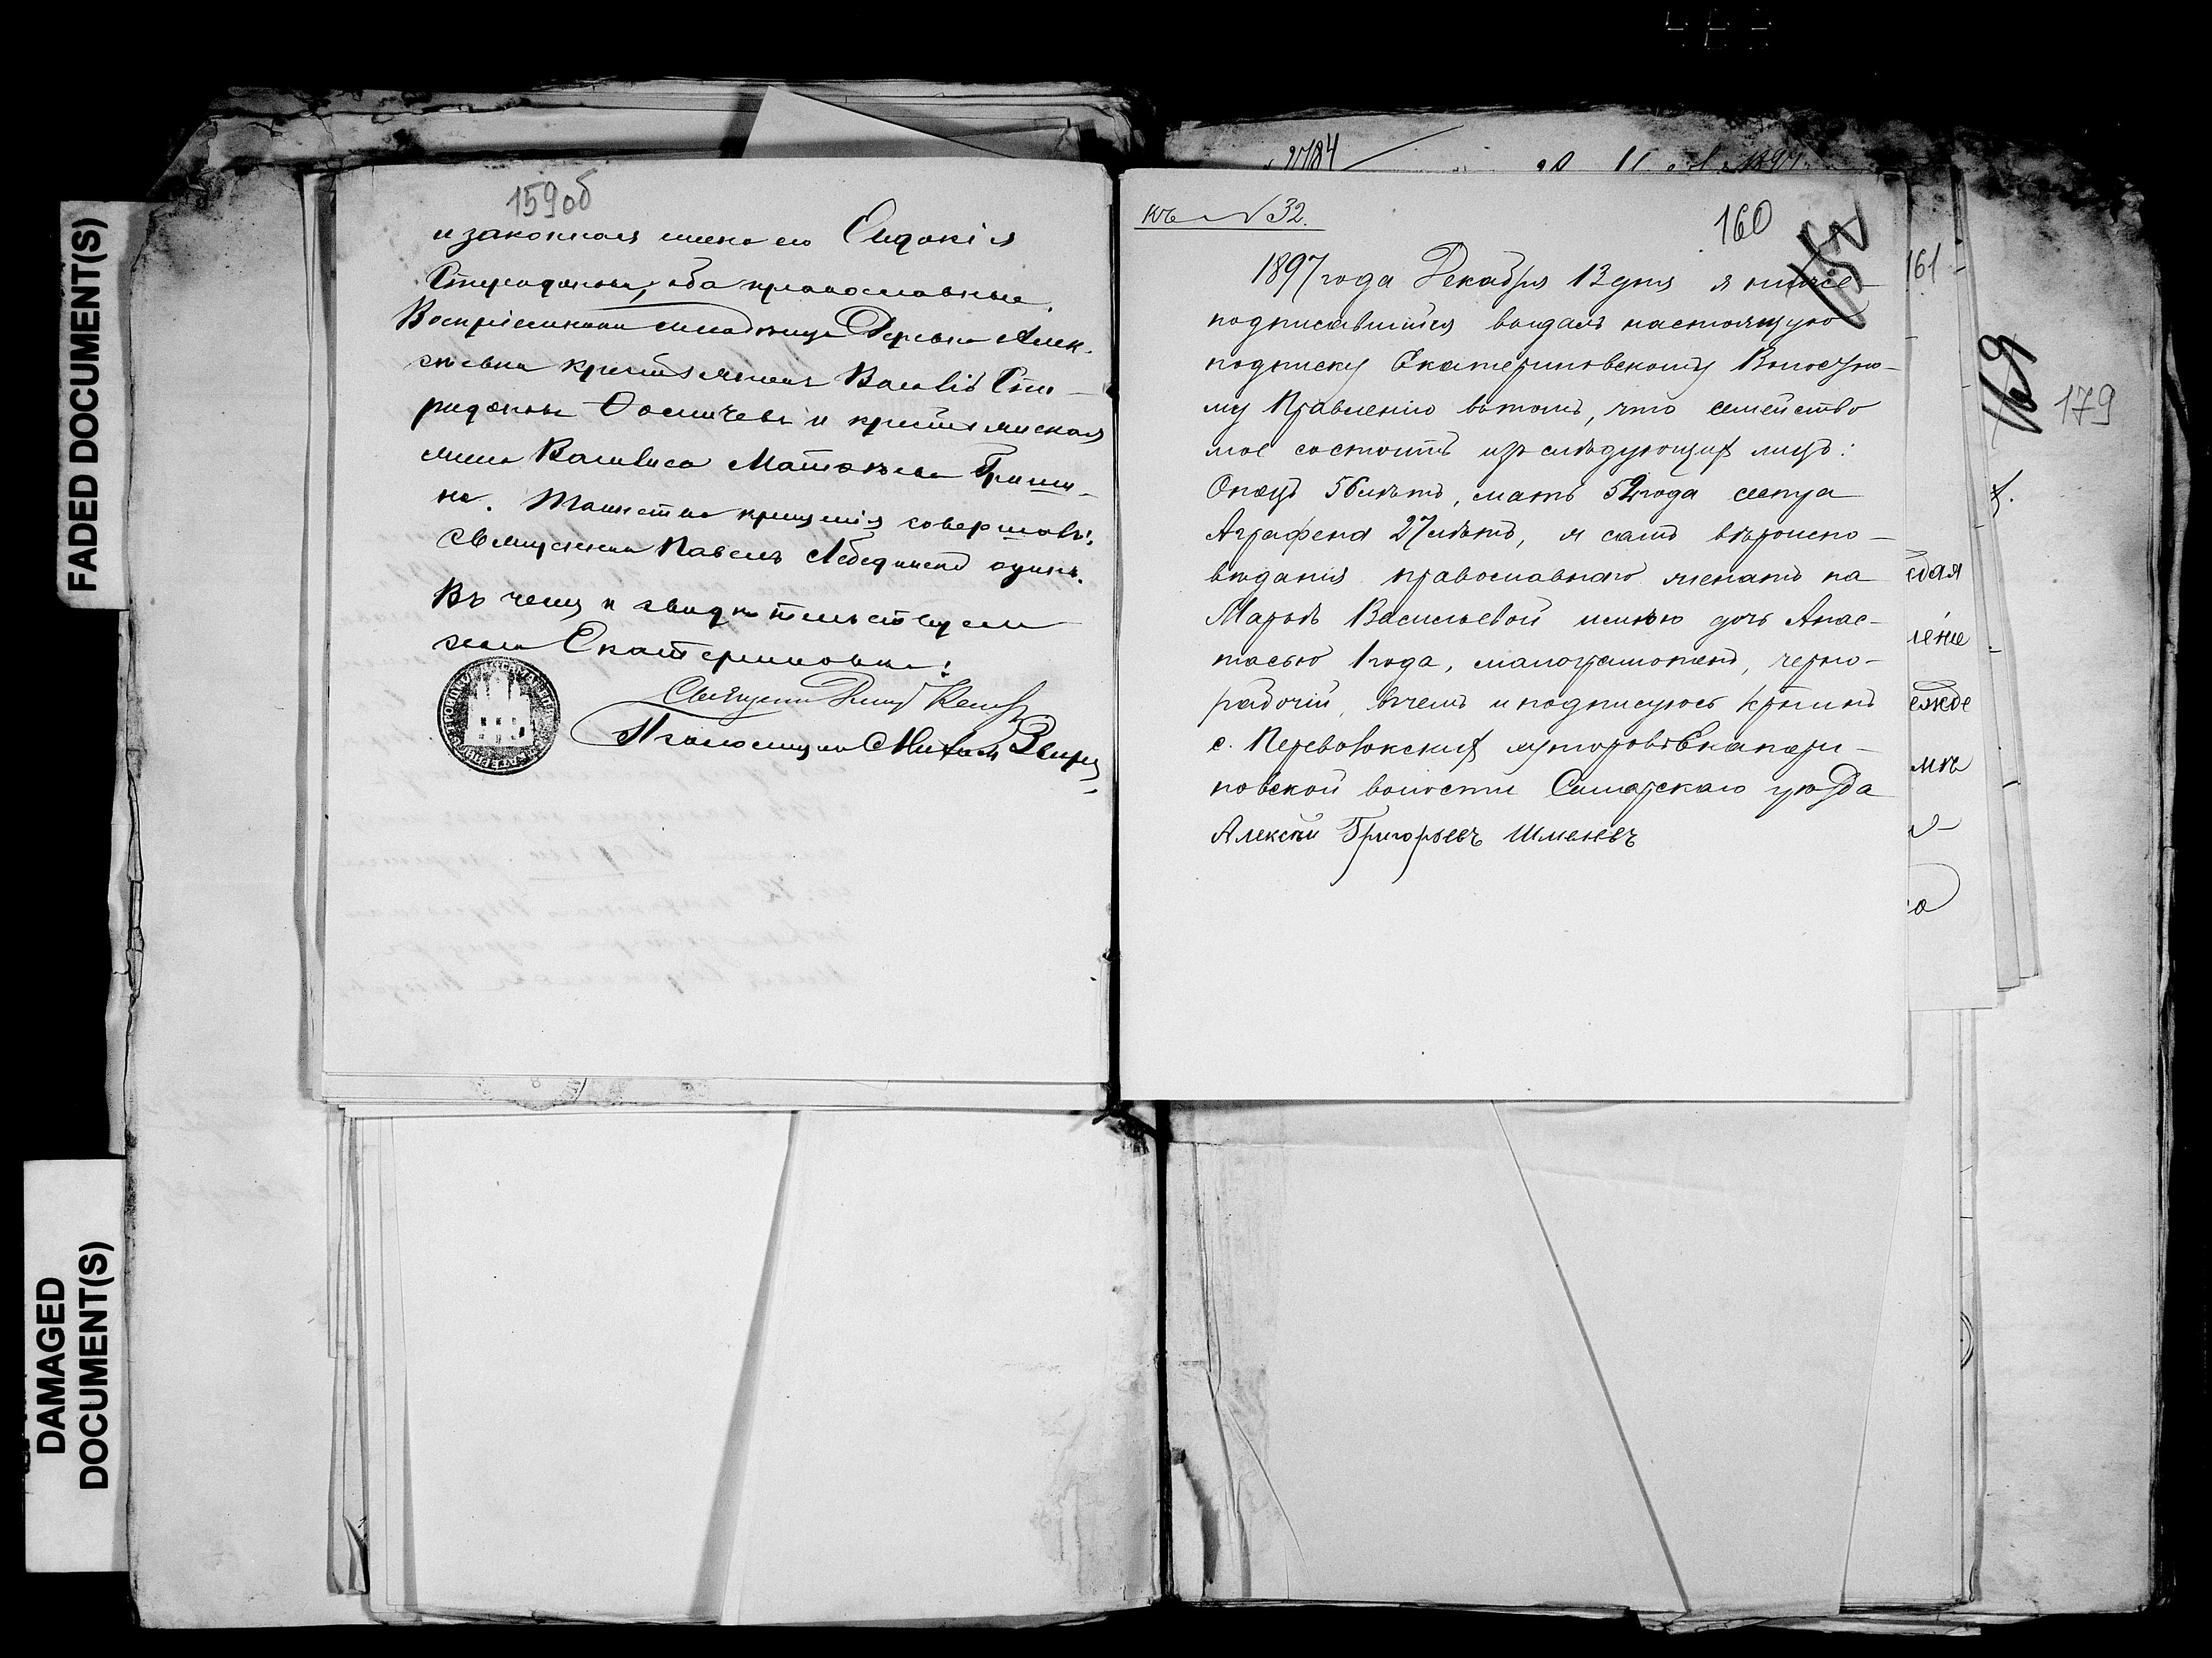 FADED DOCUMENT(S)
DAMAGED
DOCUMENT(S)
159об
и законная жена его Евдокія
Спиридонова, оба православные.
Воспріемники младенца Дарьи Алек-
сѣевны крестьянинъ Спи-
ридонъ и крестьянская
жена Василиса Матвѣева Гриши-
на. Таинство крещенія совершалъ:
священникъ Павелъ Лебединскій
Въ чемъ и свидѣтельствуемъ
села Екатериновки:
Священникъ
Псаломщикъ Михаилъ
2784
1897
къ № 32.
160
152
1897 года Декабря 13 дня я ниже-
подписавшійся выдалъ настоящую
подписку Екатериновскому Волостно-
му Правленію вътомъ, что семейство
мое состоитъ изъ слѣдующихъ лицъ:
Отецъ 56 лѣтъ, мать 52 года сестра
Аграфена 27 лѣтъ, я самъ вѣроиспо-
вѣданія православнаго женатъ на
Марьѣ Васильевой имѣю дочь Анас-
тасью 1 года, малограмотенъ, черно-
рабочій, вчемъ и подписуюсь кр-нинъ
с. Переволокскихъ хуторовъ Екатери-
новской волости Самарскаго уѣзда
Алексѣй Григорьевъ Шменевъ
161
169
179